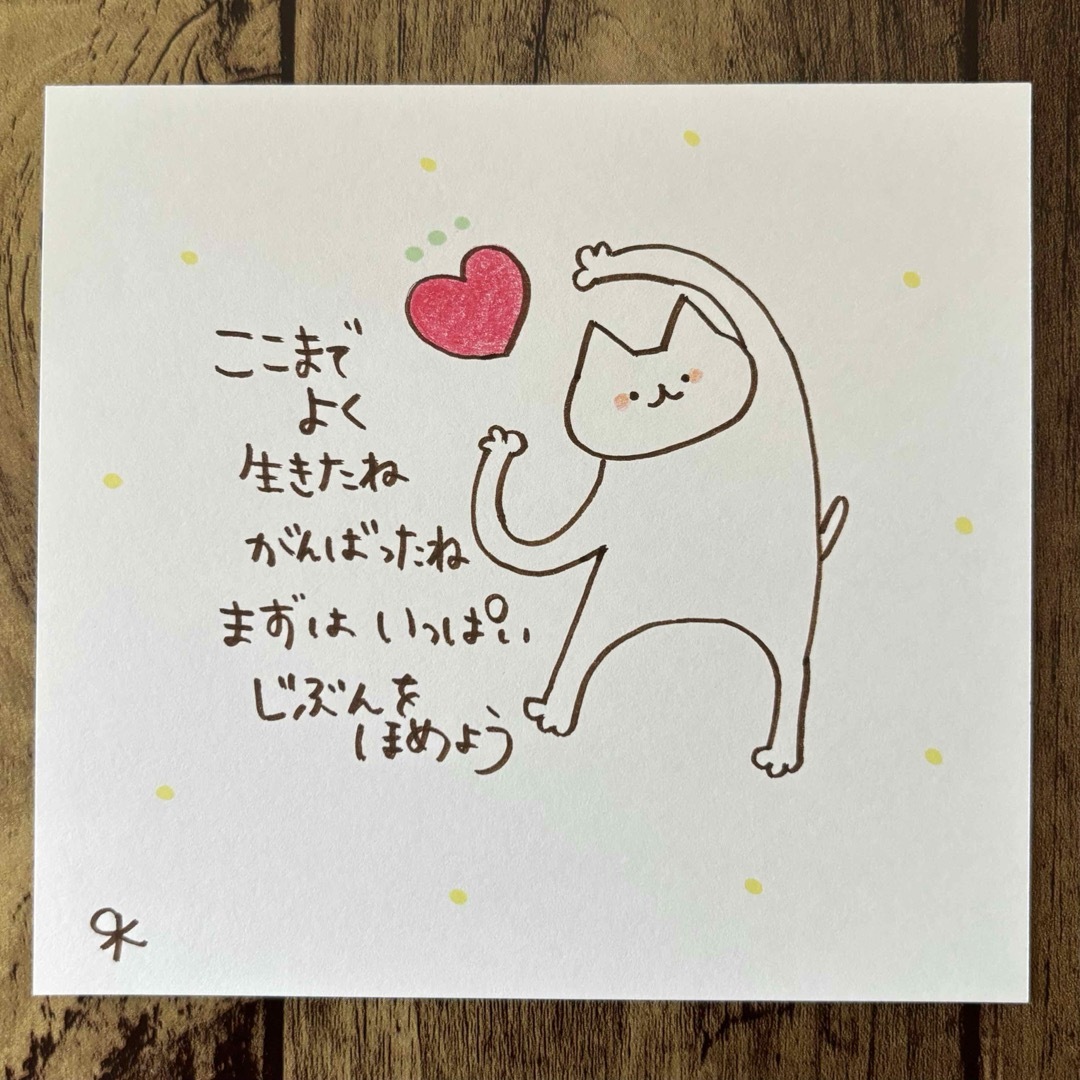 ここまで
よく
生きたね
がんばったね
まずは いっぱい
じぶんを
ほめよう